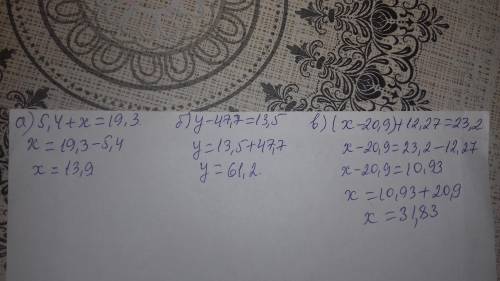 а) 5,4+x=19,3
x=19,3-5,4
x=13,9
б) y-47,7=13,5
y=13,5+47,7
y=61,2.
в) (x-20,9)+12,27=23,2
x-20,9=23,2-12,27
x-20,9=10,93
x=10,93+20,9
x=31,83